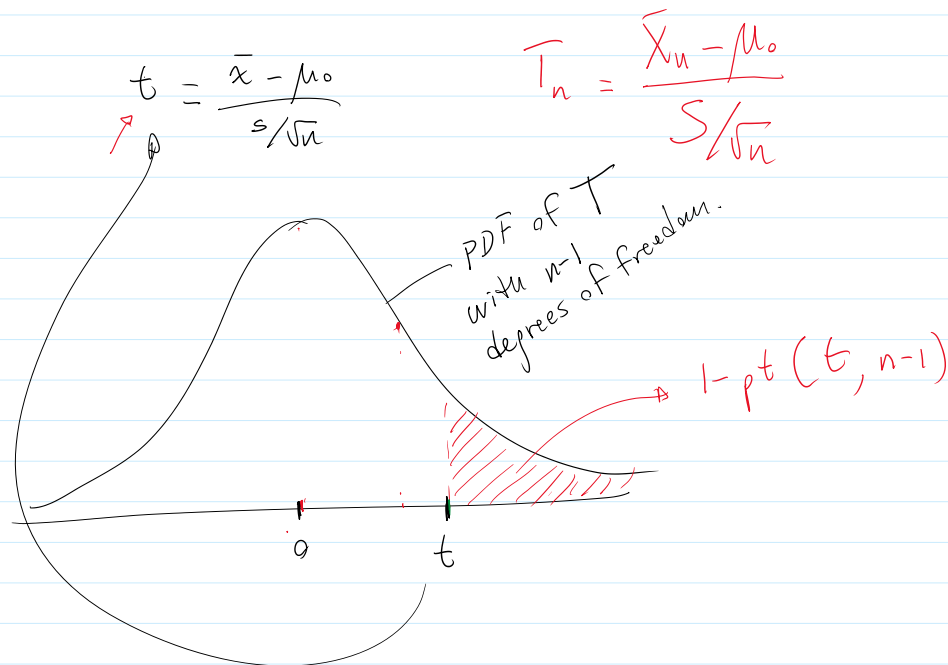 t = x̄ - μ₀ / s/√n
T̅n = X̄n - μ₀ / S/√n
PDF of T
with n-1
degrees of freedom.
1-pt(t, n-1)
0
t